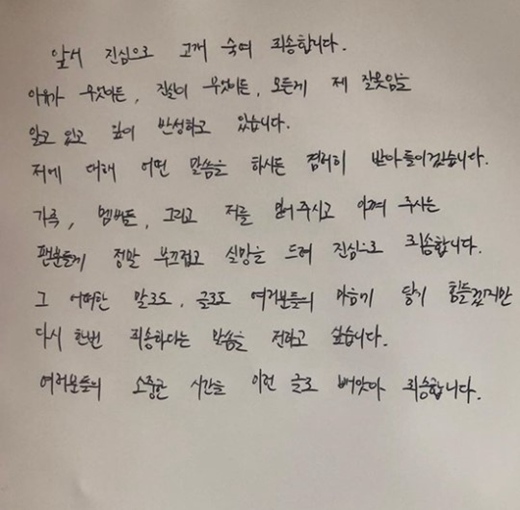 앞서 진심으로 고개 숙여 죄송합니다.
이유가 무엇이든, 진실이 무엇이든, 모든게 제 잘못임을
알고 있고 깊이 반성하고 있습니다.
저에 대해 어떤 말씀을 하시든 겸허히 받아들이겠습니다.
가족, 멤버들, 그리고 저를 믿어 주시고 아껴 주시는
팬분들게 정말 부끄럽고 실망을 드려 진심으로 죄송합니다.
그 어떠한 말로도, 글로도 여러분들의 마음이 닿기 힘들겠지만
다시 한번 죄송하다는 말씀을 전하고 싶습니다.
여러분들의 소중한 시간을 이런 글로 빼앗아 죄송합니다.